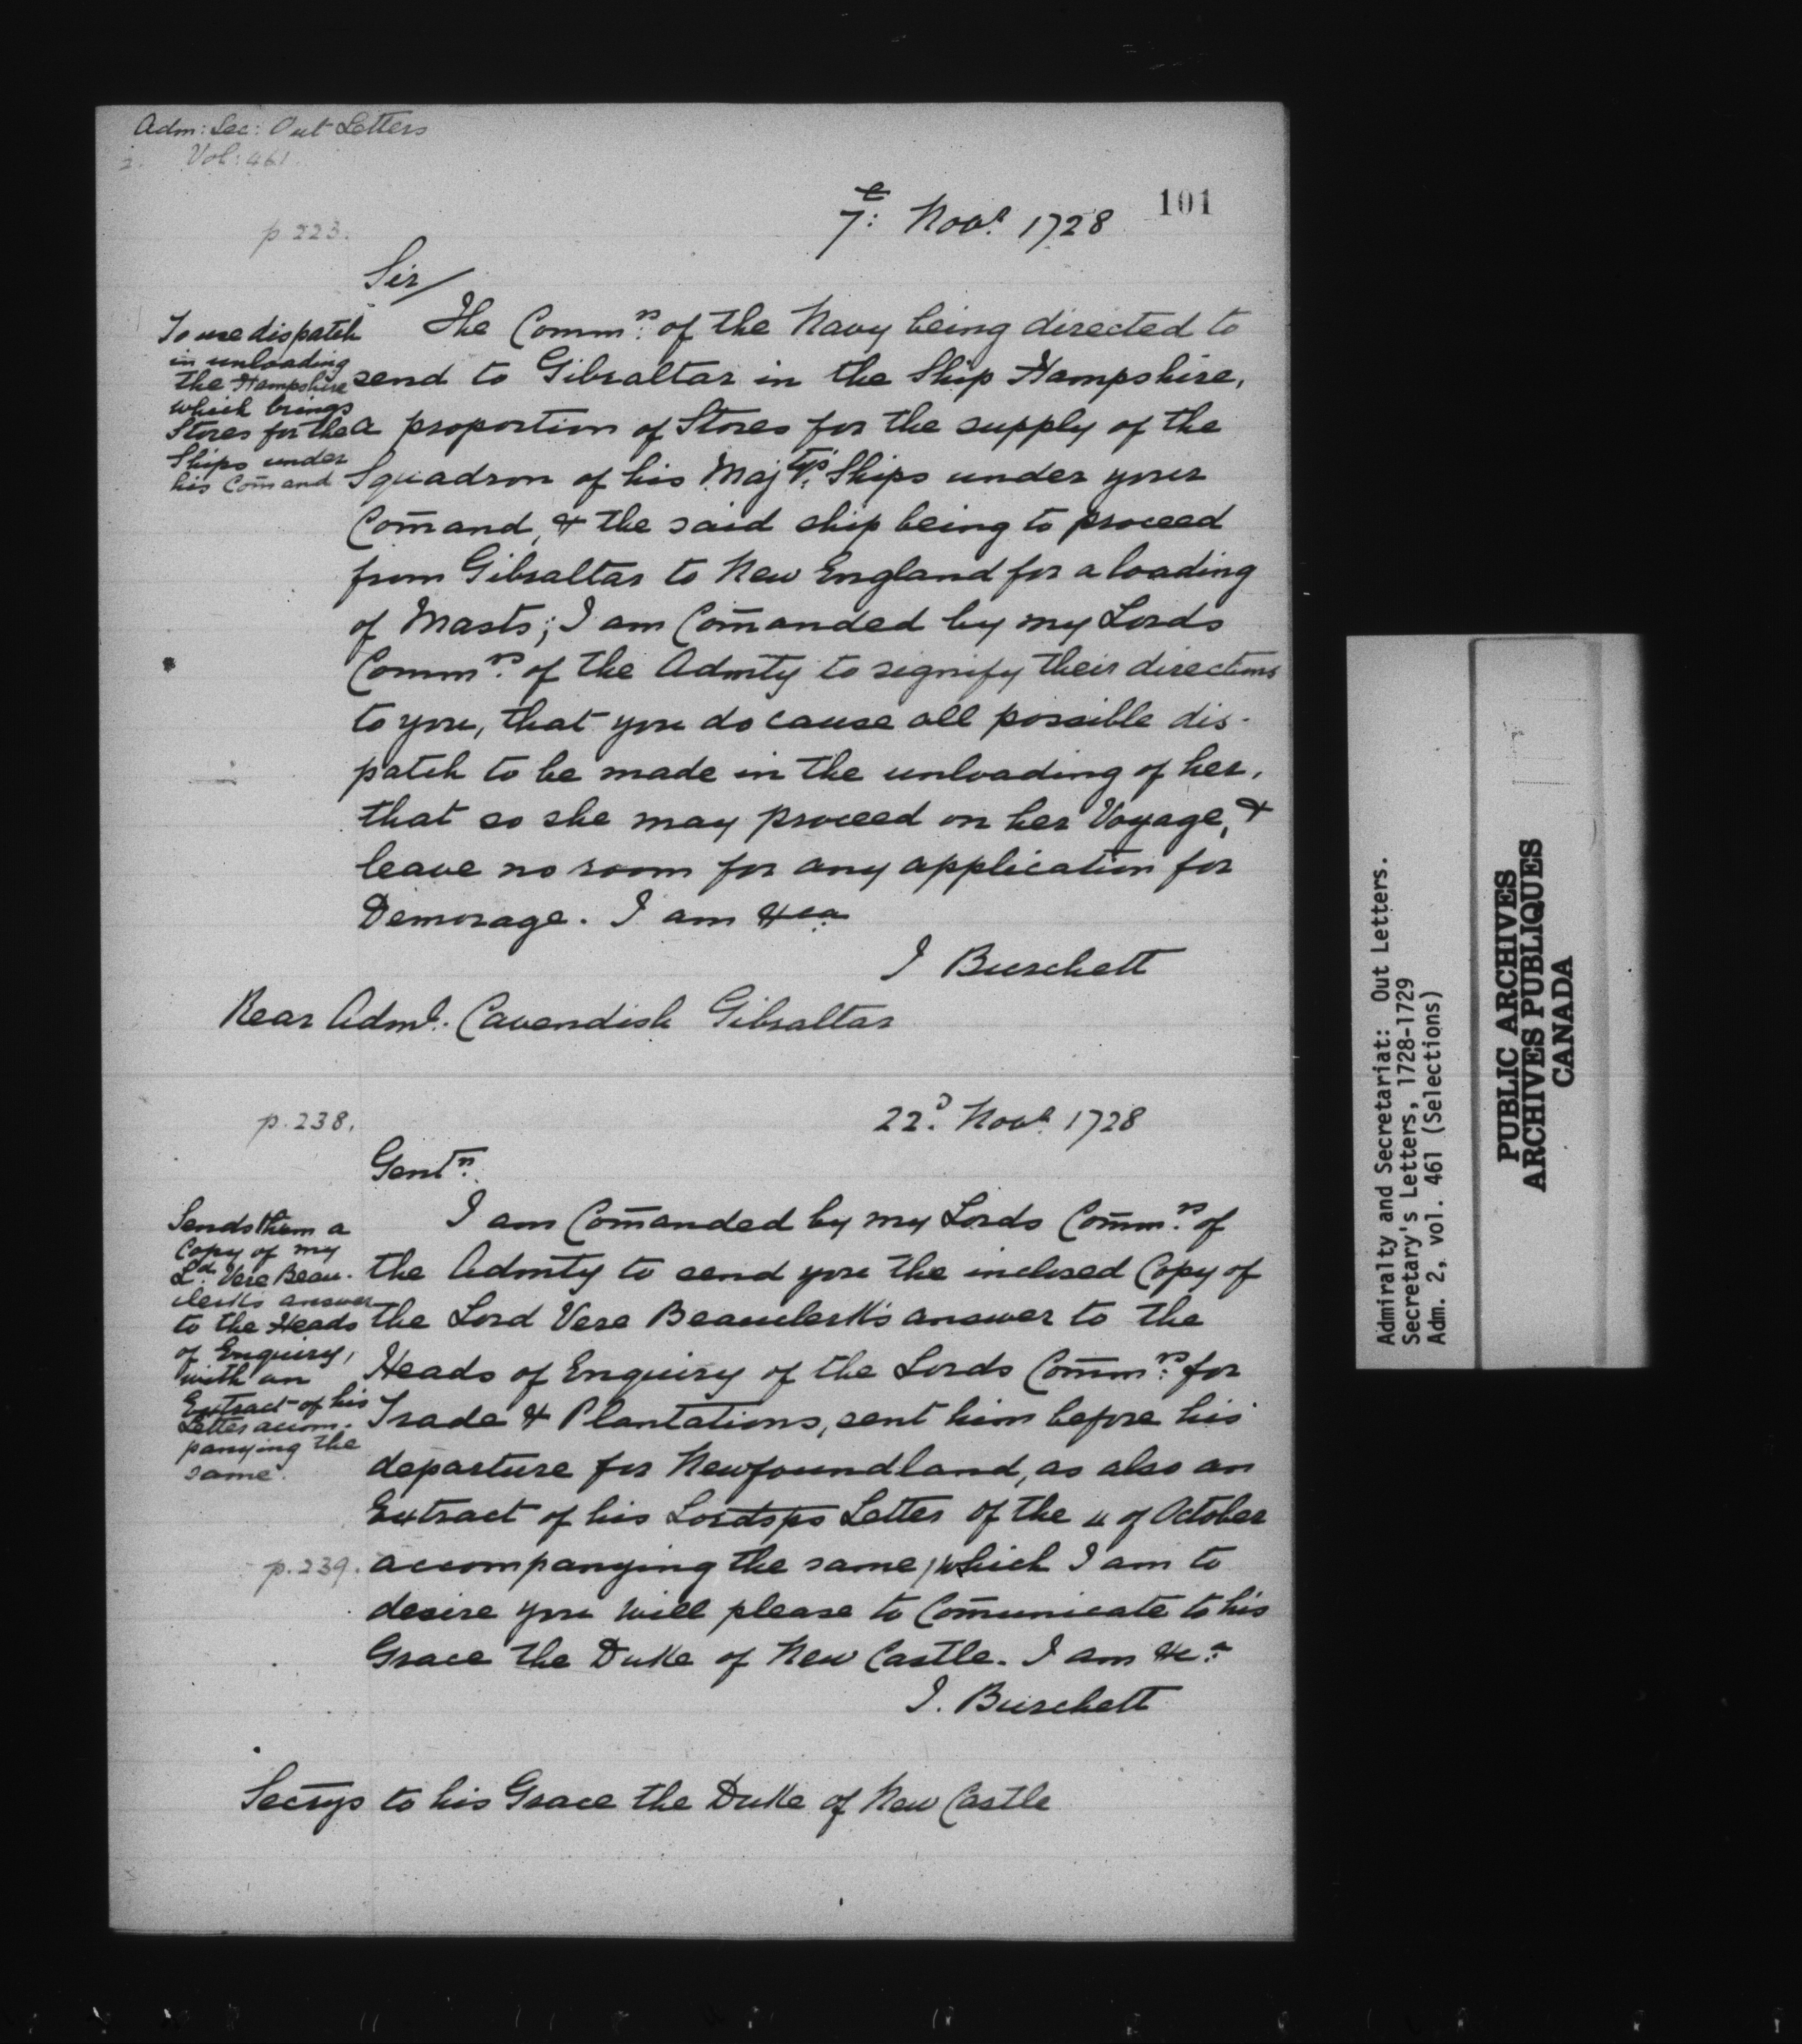 Adm: Sec: Out Letters
2. Vol: 461.
101
7.ᵗ: Novʳ. 1728
p. 223.
Sir/
To use dispatch
in unloading
the Hampshire
which brings
Stores for the
Ships under
his Com̄and
The Commʳˢ. of the Navy being directed to
send to Gibraltar in the Ship Hampshire,
a proportion of Stores for the supply of the
Squadron of his Majᵗʸˢ. Ships under your
Com̄and, & the said ship being to proceed
from Gibraltar to New England for a loading
of Masts; I am Com̄anded by my Lords
Commʳˢ. of the Admty to signify their directions
to you, that you do cause all possible dis-
patch to be made in the unloading of her,
that so she may proceed on her Voyage, &
leave no room for any application for
Demorage. I am &ca.
J Burchett
Rear Adml. Cavendish Gibraltar
p. 238.
22ᴰ. Novʳ. 1728
Gentⁿ.
Sends them a
Copy of my
Lᵈ. Vere Beau-
clerk's answer
to the Heads
of Enquiry,
with an
Extract of his
Letter accom-
panying the
same.
I am Com̄anded by my Lords Com̄mʳˢ. of
the Admty to send you the inclosed Copy of
the Lord Vere Beauclerk's answer to the
Heads of Enquiry of the Lords Com̄mʳˢ. for
Trade & Plantations, sent him before his
departure for Newfoundland, as also an
Extract of his Lordsps Letter of the 11 of October
p. 239.
accompanying the same, which I am to
desire you will please to Com̄unicate to his
Grace the Duke of New Castle. I am &c.ᵃ
J. Burchett
Secrys to his Grace the Duke of New Castle
Admiralty and Secretariat: Out Letters.
Secretary's Letters, 1728-1729
Adm. 2, vol. 461 (Selections)
PUBLIC ARCHIVES
ARCHIVES PUBLIQUES
CANADA